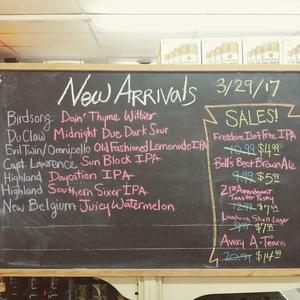 New Arrivals
3/29/17
Birdsong Doin' Thyme Witbier
DuClaw Midnight Due Dark Sour
Evil Twin/Omnipollo Old Fashioned Lemonade IPA
Capt. Lawrence Sun Block IPA
Highland Daycation IPA
Highland Southern Sixer IPA
New Belgium Juicy Watermelon
SALES!
Freedom Isn't Free IPA
10.99 $4.99
Bell's Best Brown Ale
9.99 $5.99
21st Amendment
Toaster Pastry
12.99 $7.99
Laughing Skull Lager
$7.99
Avery A-Team
$14.99